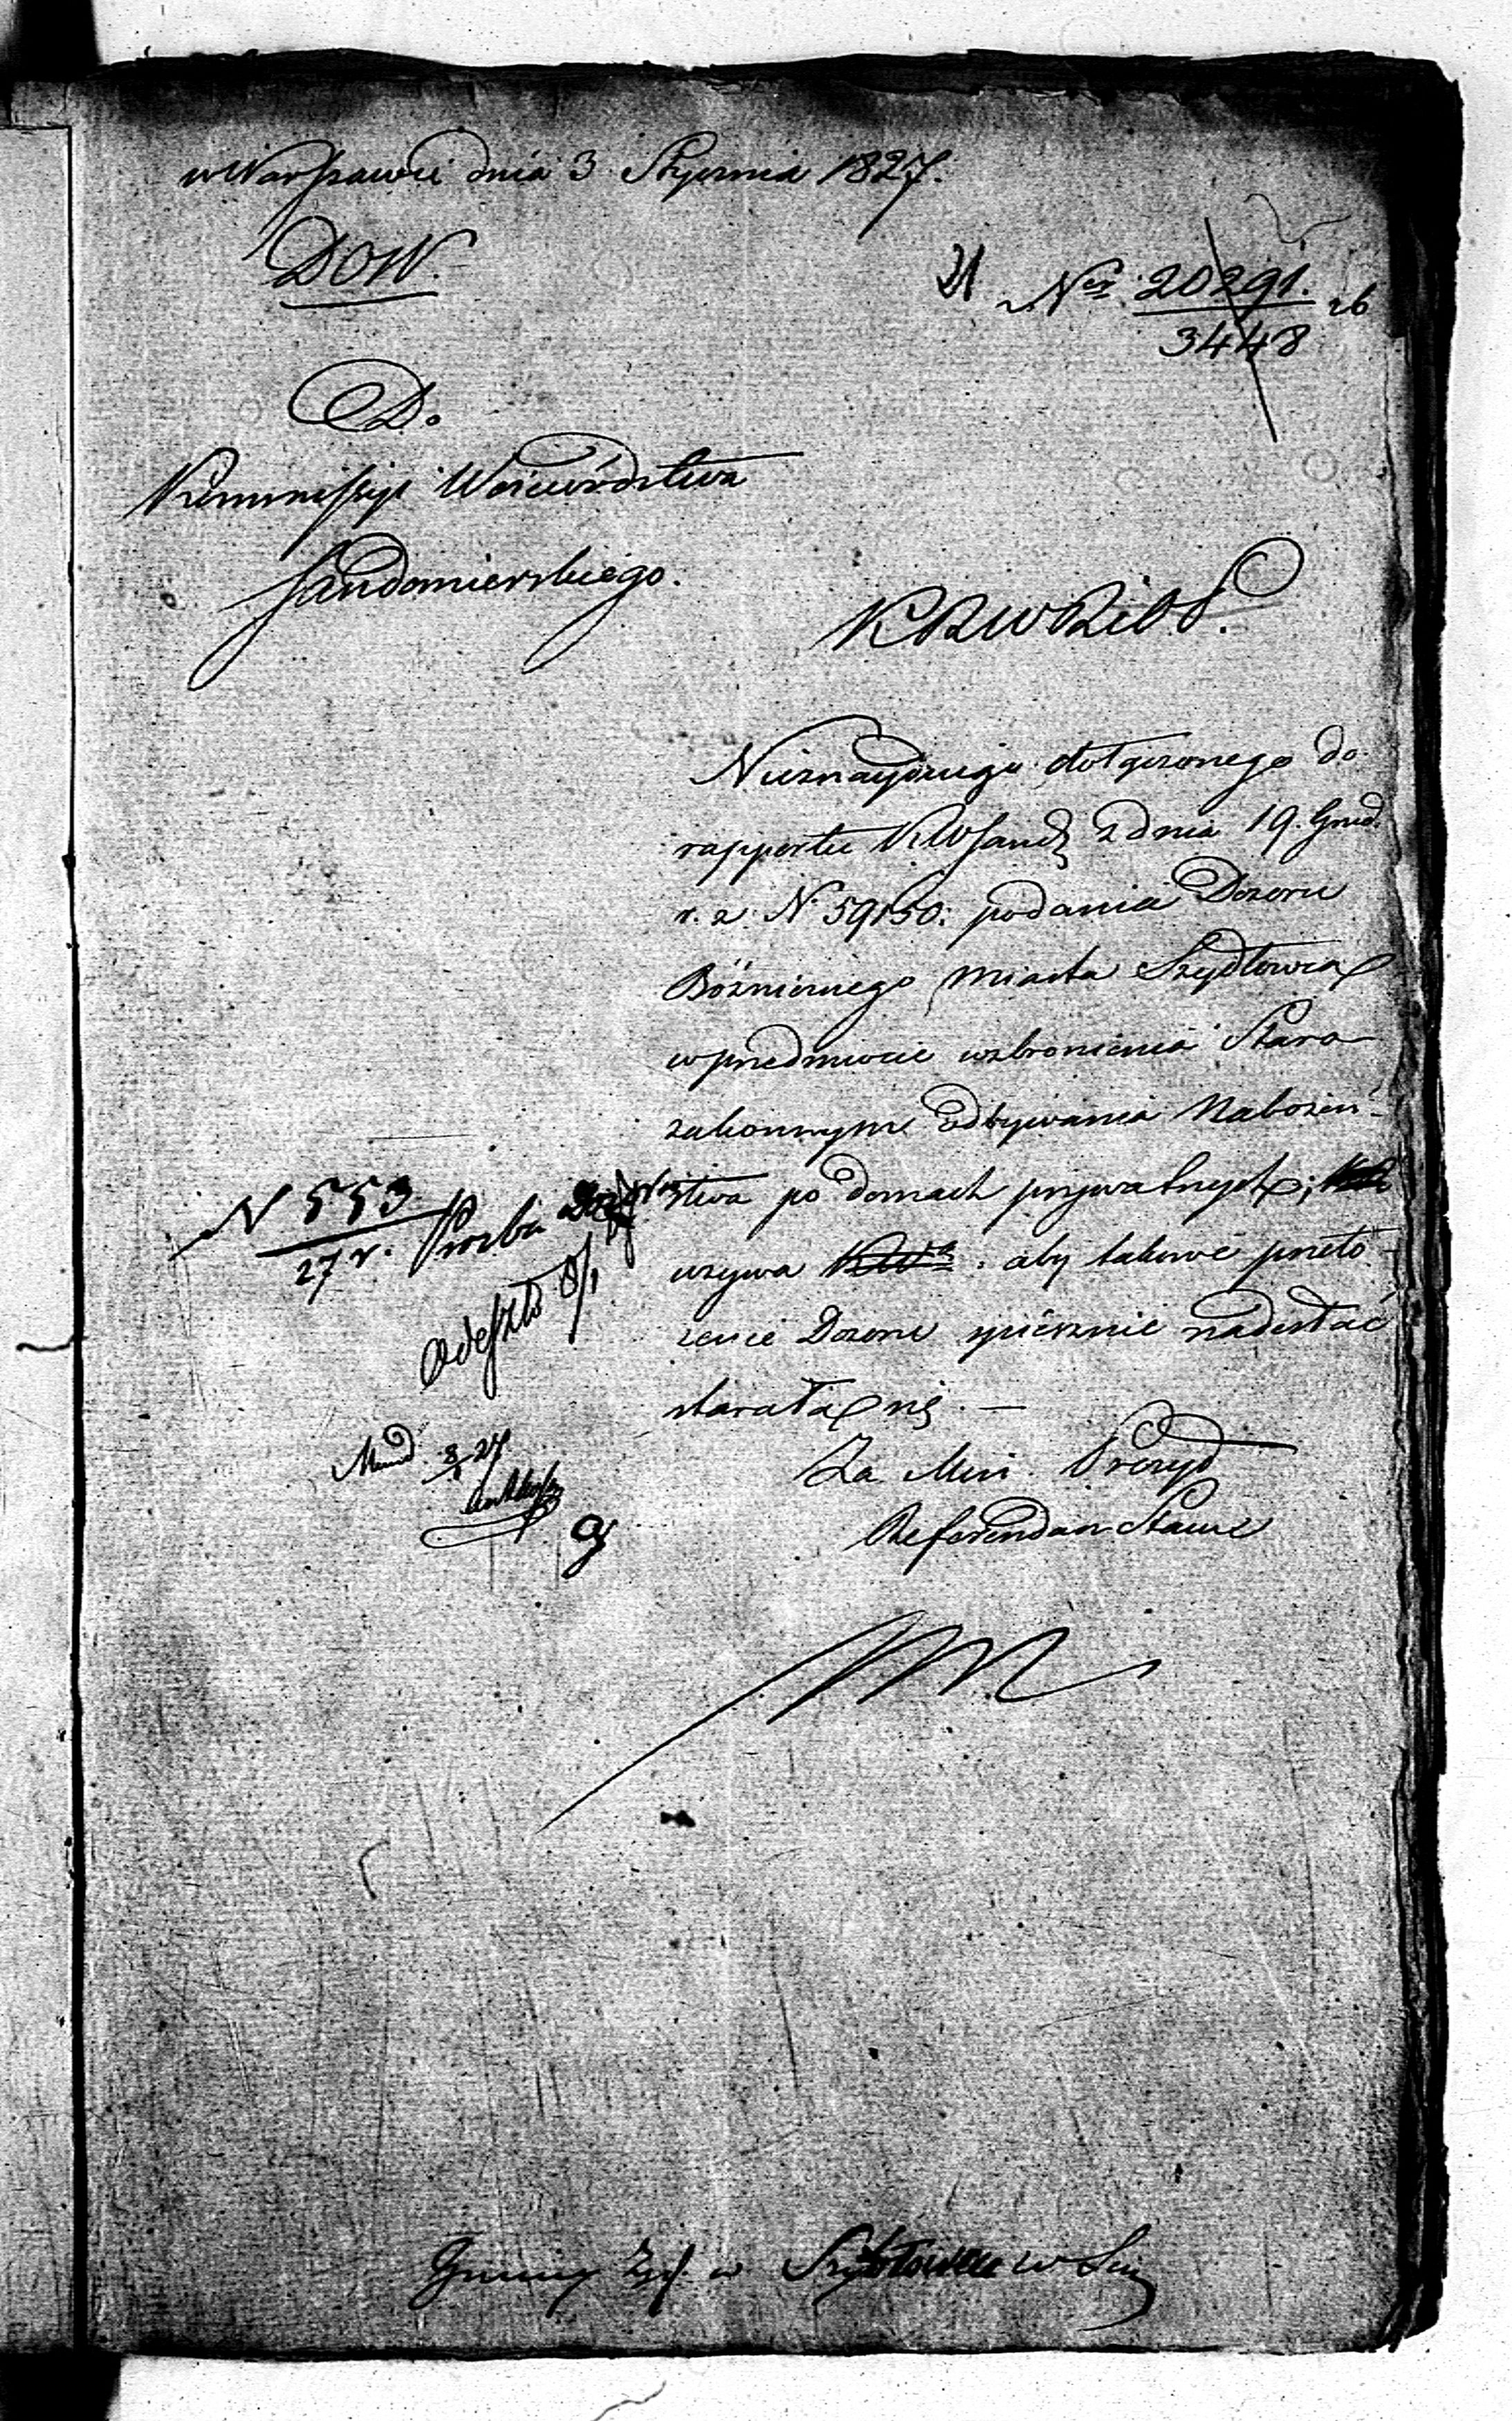 w Warszawie dnia 3 Stycznia 1827.
DOW.
21 Ner 20291. 26
3448
Do
Kommissyi Woiewództwa
Sandomierskiego.
KRWRiOP.
Nieznayduiąc dołączonego do
rapportu KWSand z dnia 19. Grud.
r. z. N. 59150. podania Dozoru
Bóżniczego miasta Szydłowca
w przedmiocie wzbronienia Staro-
zakonnym odbywania Nabożeń-
stwa po domach prywatnych;
wzywa aby takowe przeło-
żenie Dozoru spiesznie nadesłać
starała się. —
Za Min. Prezyd
Referendarz Stanu
N 553
27 r. Prosba
Odeszło 8/1
Mund. 8/1 27
Gminy Żyd. w Szydłowcu w